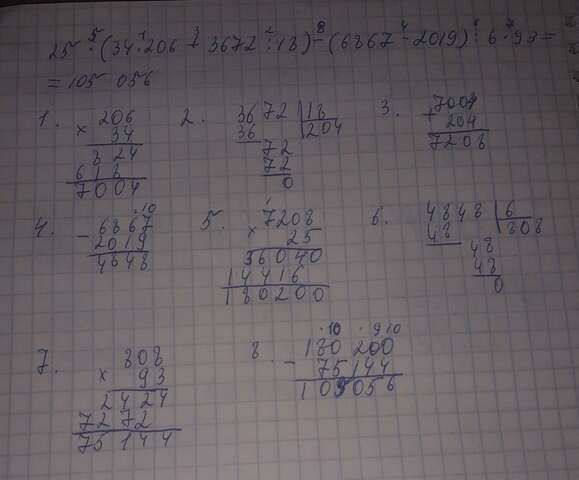 25 · (34 · 206 + 3672 : 18) - (6867 - 2019) : 6 · 93 =
= 105 056
1. × 206
34
824
618
7004
2. 3672 | 18
36 | 204
72
72
0
3. + 7004
204
7208
4. - 6867
2019
4848
5. × 7208
25
36040
14416
180200
6. 4848 | 6
48 | 808
48
48
0
7. × 808
93
2424
7272
75144
8. - 180200
75144
105056